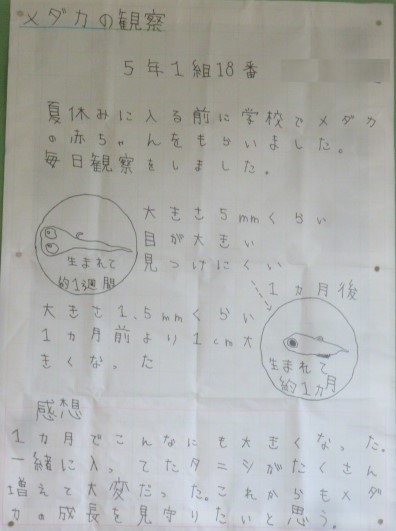 メダカの観察
5年1組18番
夏休みに入る前に学校でメダカ
の赤ちゃんをもらいました。
毎日観察をしました。
大きさ5mmくらい
目が大きい
見つけにくい
生まれて
約1週間
1ヵ月後
大きさ1.5mmくらい
1ヵ月前より1cm大
きくなった
生まれて
約1ヵ月
感想
1ヵ月でこんなにも大きくなった。
一緒に入ってたタニシがたくさん
増えて大変だった。これからもメダ
カの成長を見守りたいと思う。